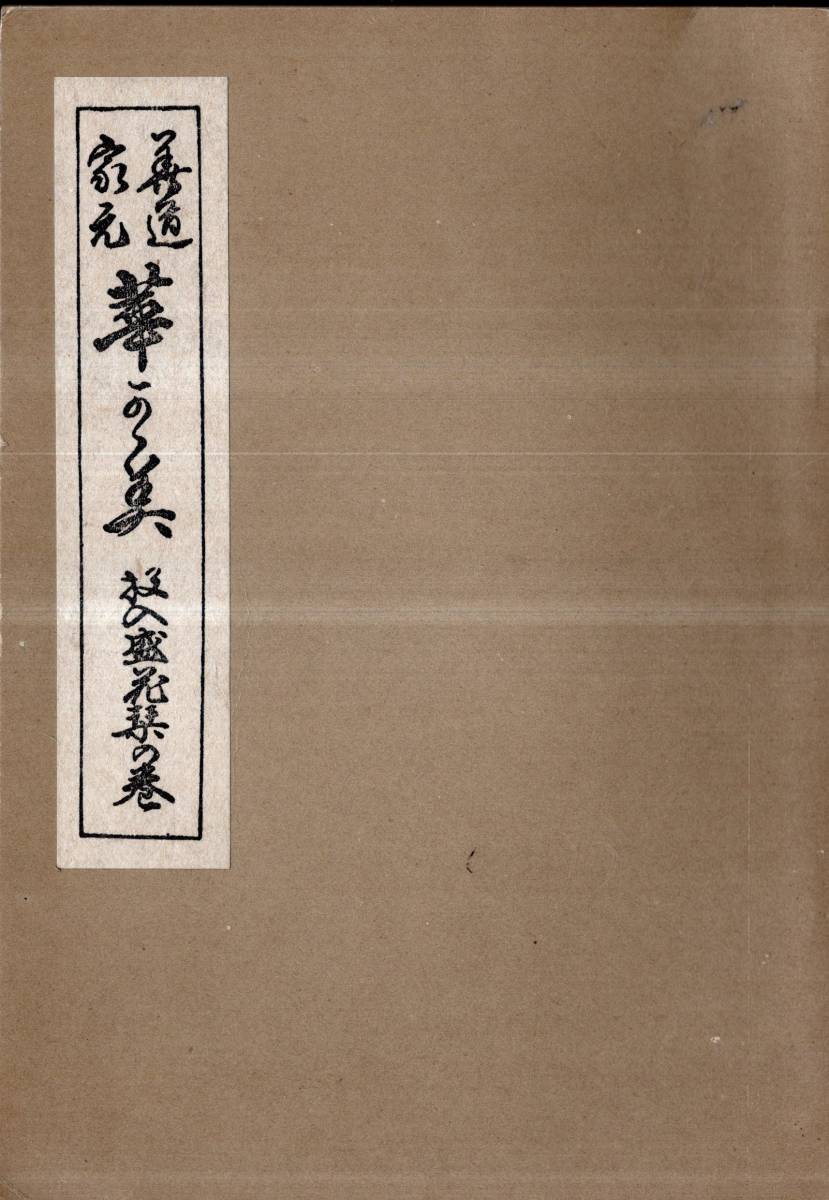 華道
家元
華かゞ美
投入盛花琹の巻